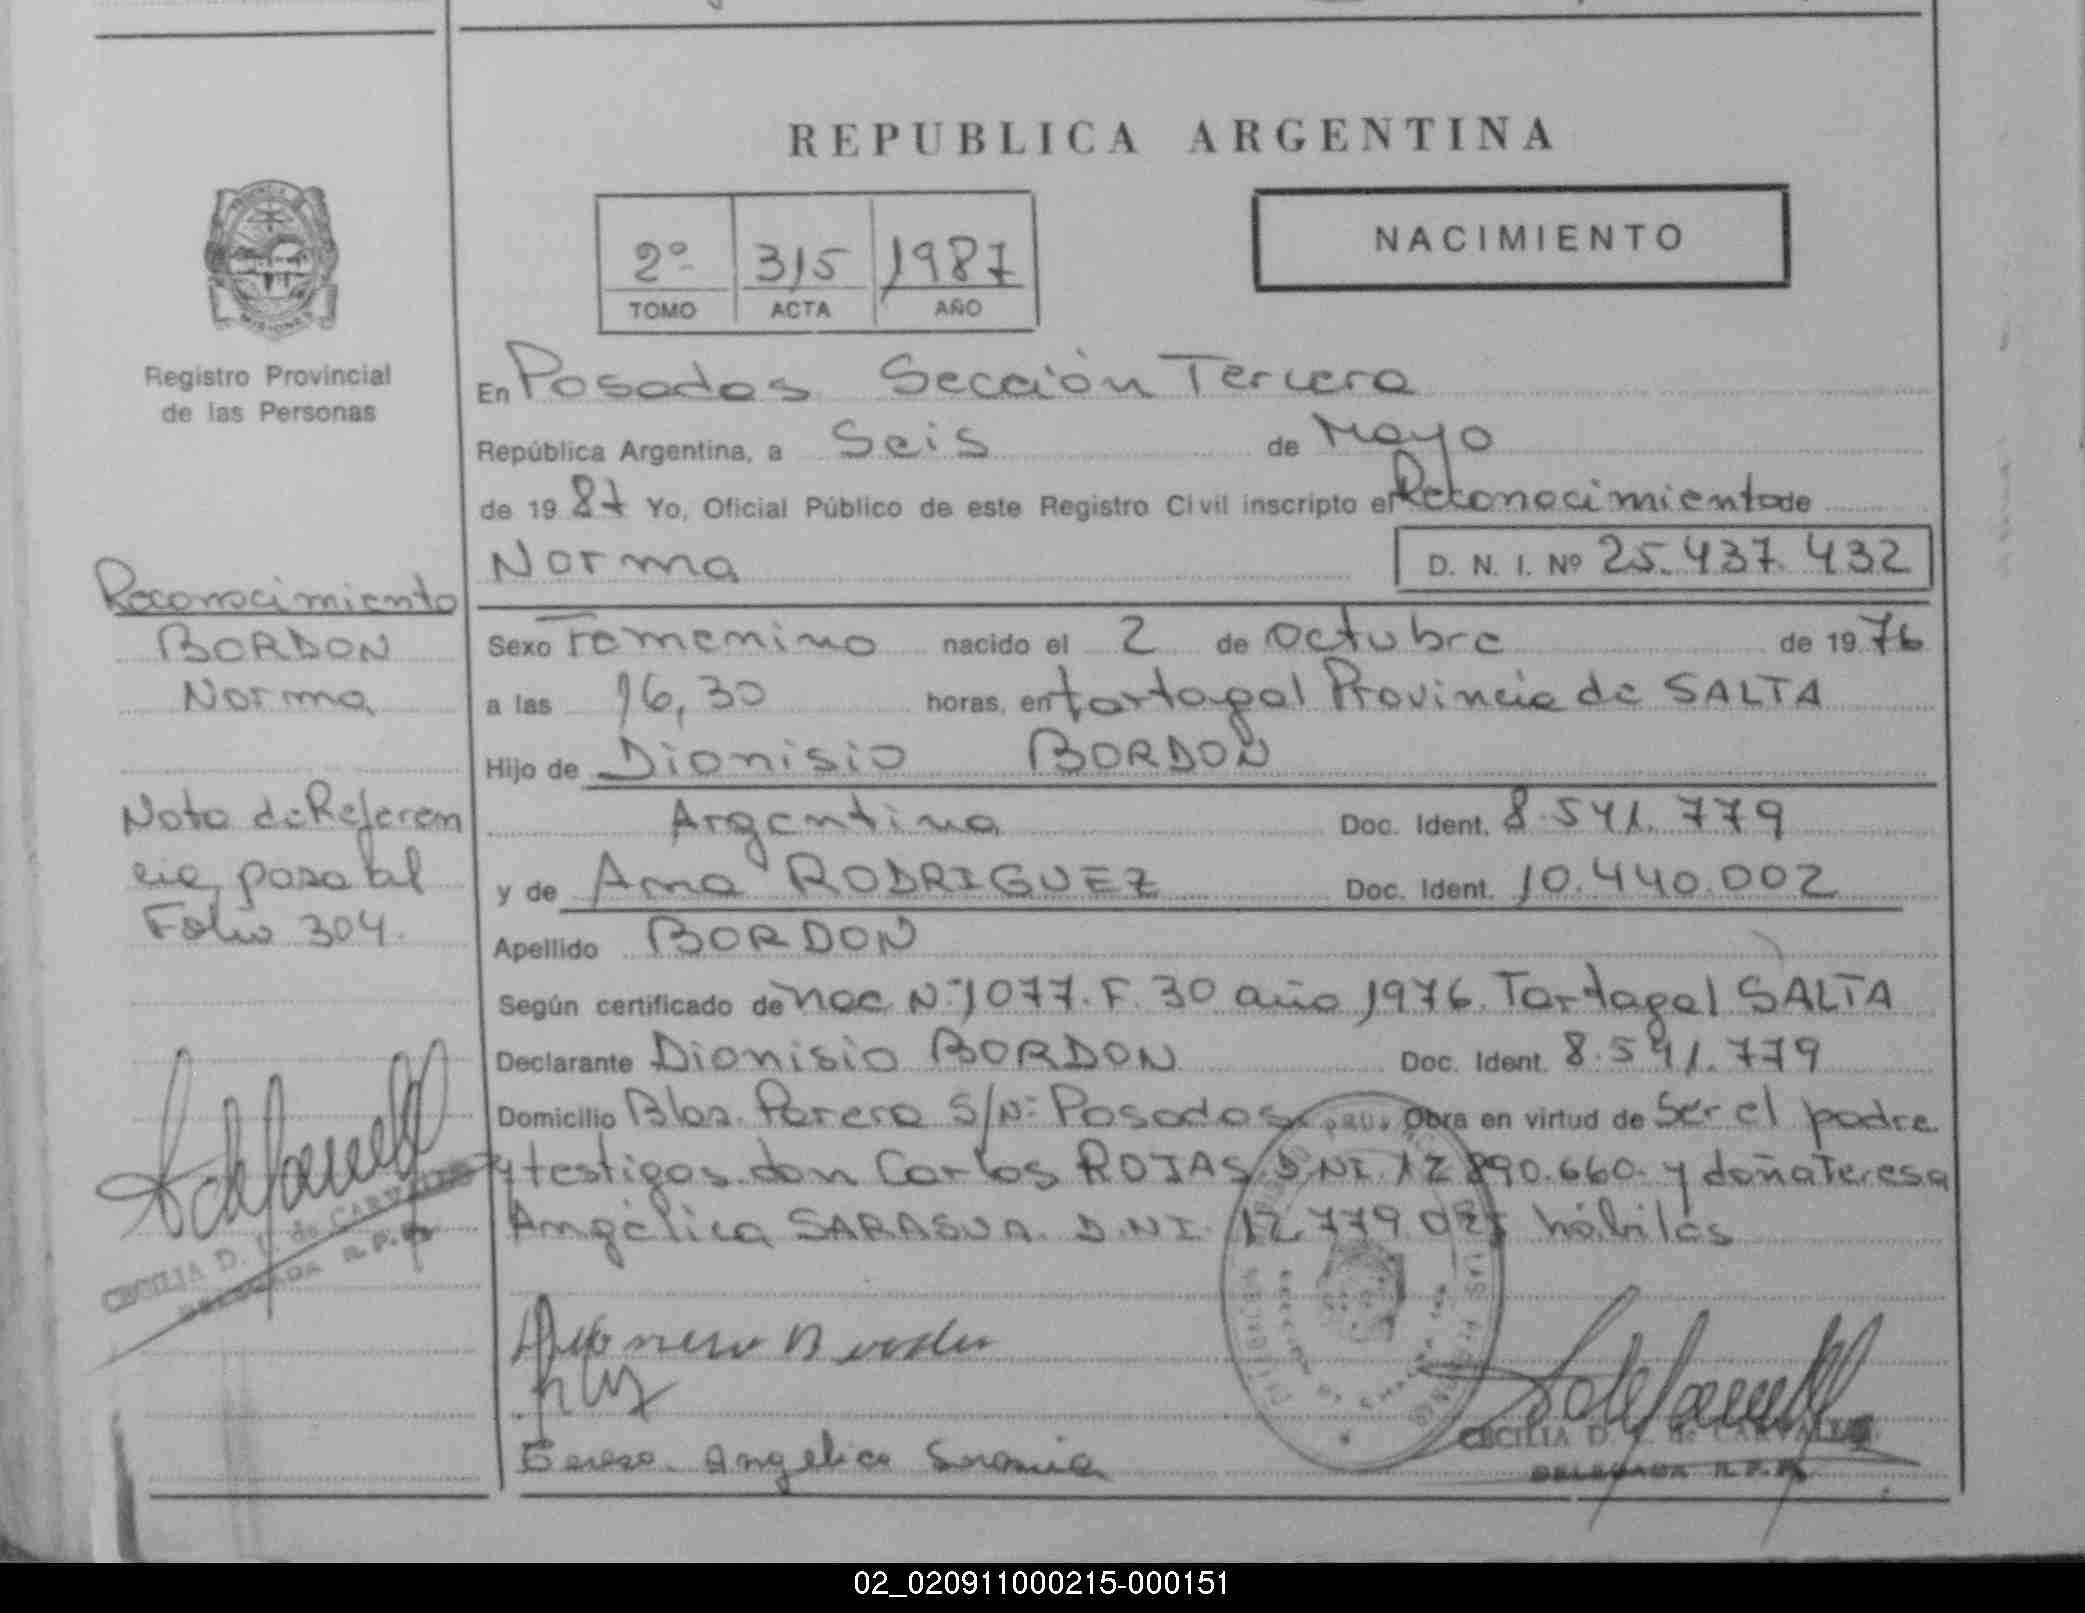 REPUBLICA ARGENTINA
NACIMIENTO
2º 315 1987
TOMO ACTA AÑO
MISIONES
Registro Provincial
de las Personas
Reconocimiento
BORDON
Norma
Nota de Referen
cia pasa al
Folio 304.
CECILIA D. de CARVALLO
DELEGADA R.P.P.
En Posadas Sección Tercera
República Argentina, a Seis de Mayo
de 1987 Yo, Oficial Público de este Registro Civil inscripto el Reconocimiento de
Norma D. N. I. Nº 25.437.432
Sexo Femenino nacido el 2 de octubre de 1976
a las 16,30 horas, en tartagal Provincia de SALTA
Hijo de Dionisio BORDON
Argentina Doc. Ident. 8.541.779
y de Ana RODRIGUEZ Doc. Ident. 10.440.002
Apellido BORDON
Según certificado de nac Nº 1077. F. 30 año 1976. Tartagal SALTA
Declarante Dionisio BORDON Doc. Ident. 8.541.779
Domicilio Blas. Parera S/Nº Posadas Obra en virtud de Ser el padre
y testigos don Carlos ROJAS D.NI. 12.890.660. y doña Teresa
Angélica SARASUA. D.NI. 12.779. hábiles
Teresa Angelica Sarasua
CECILIA D. de CARVALLO
DELEGADA R.P.P.
02_020911000215-000151